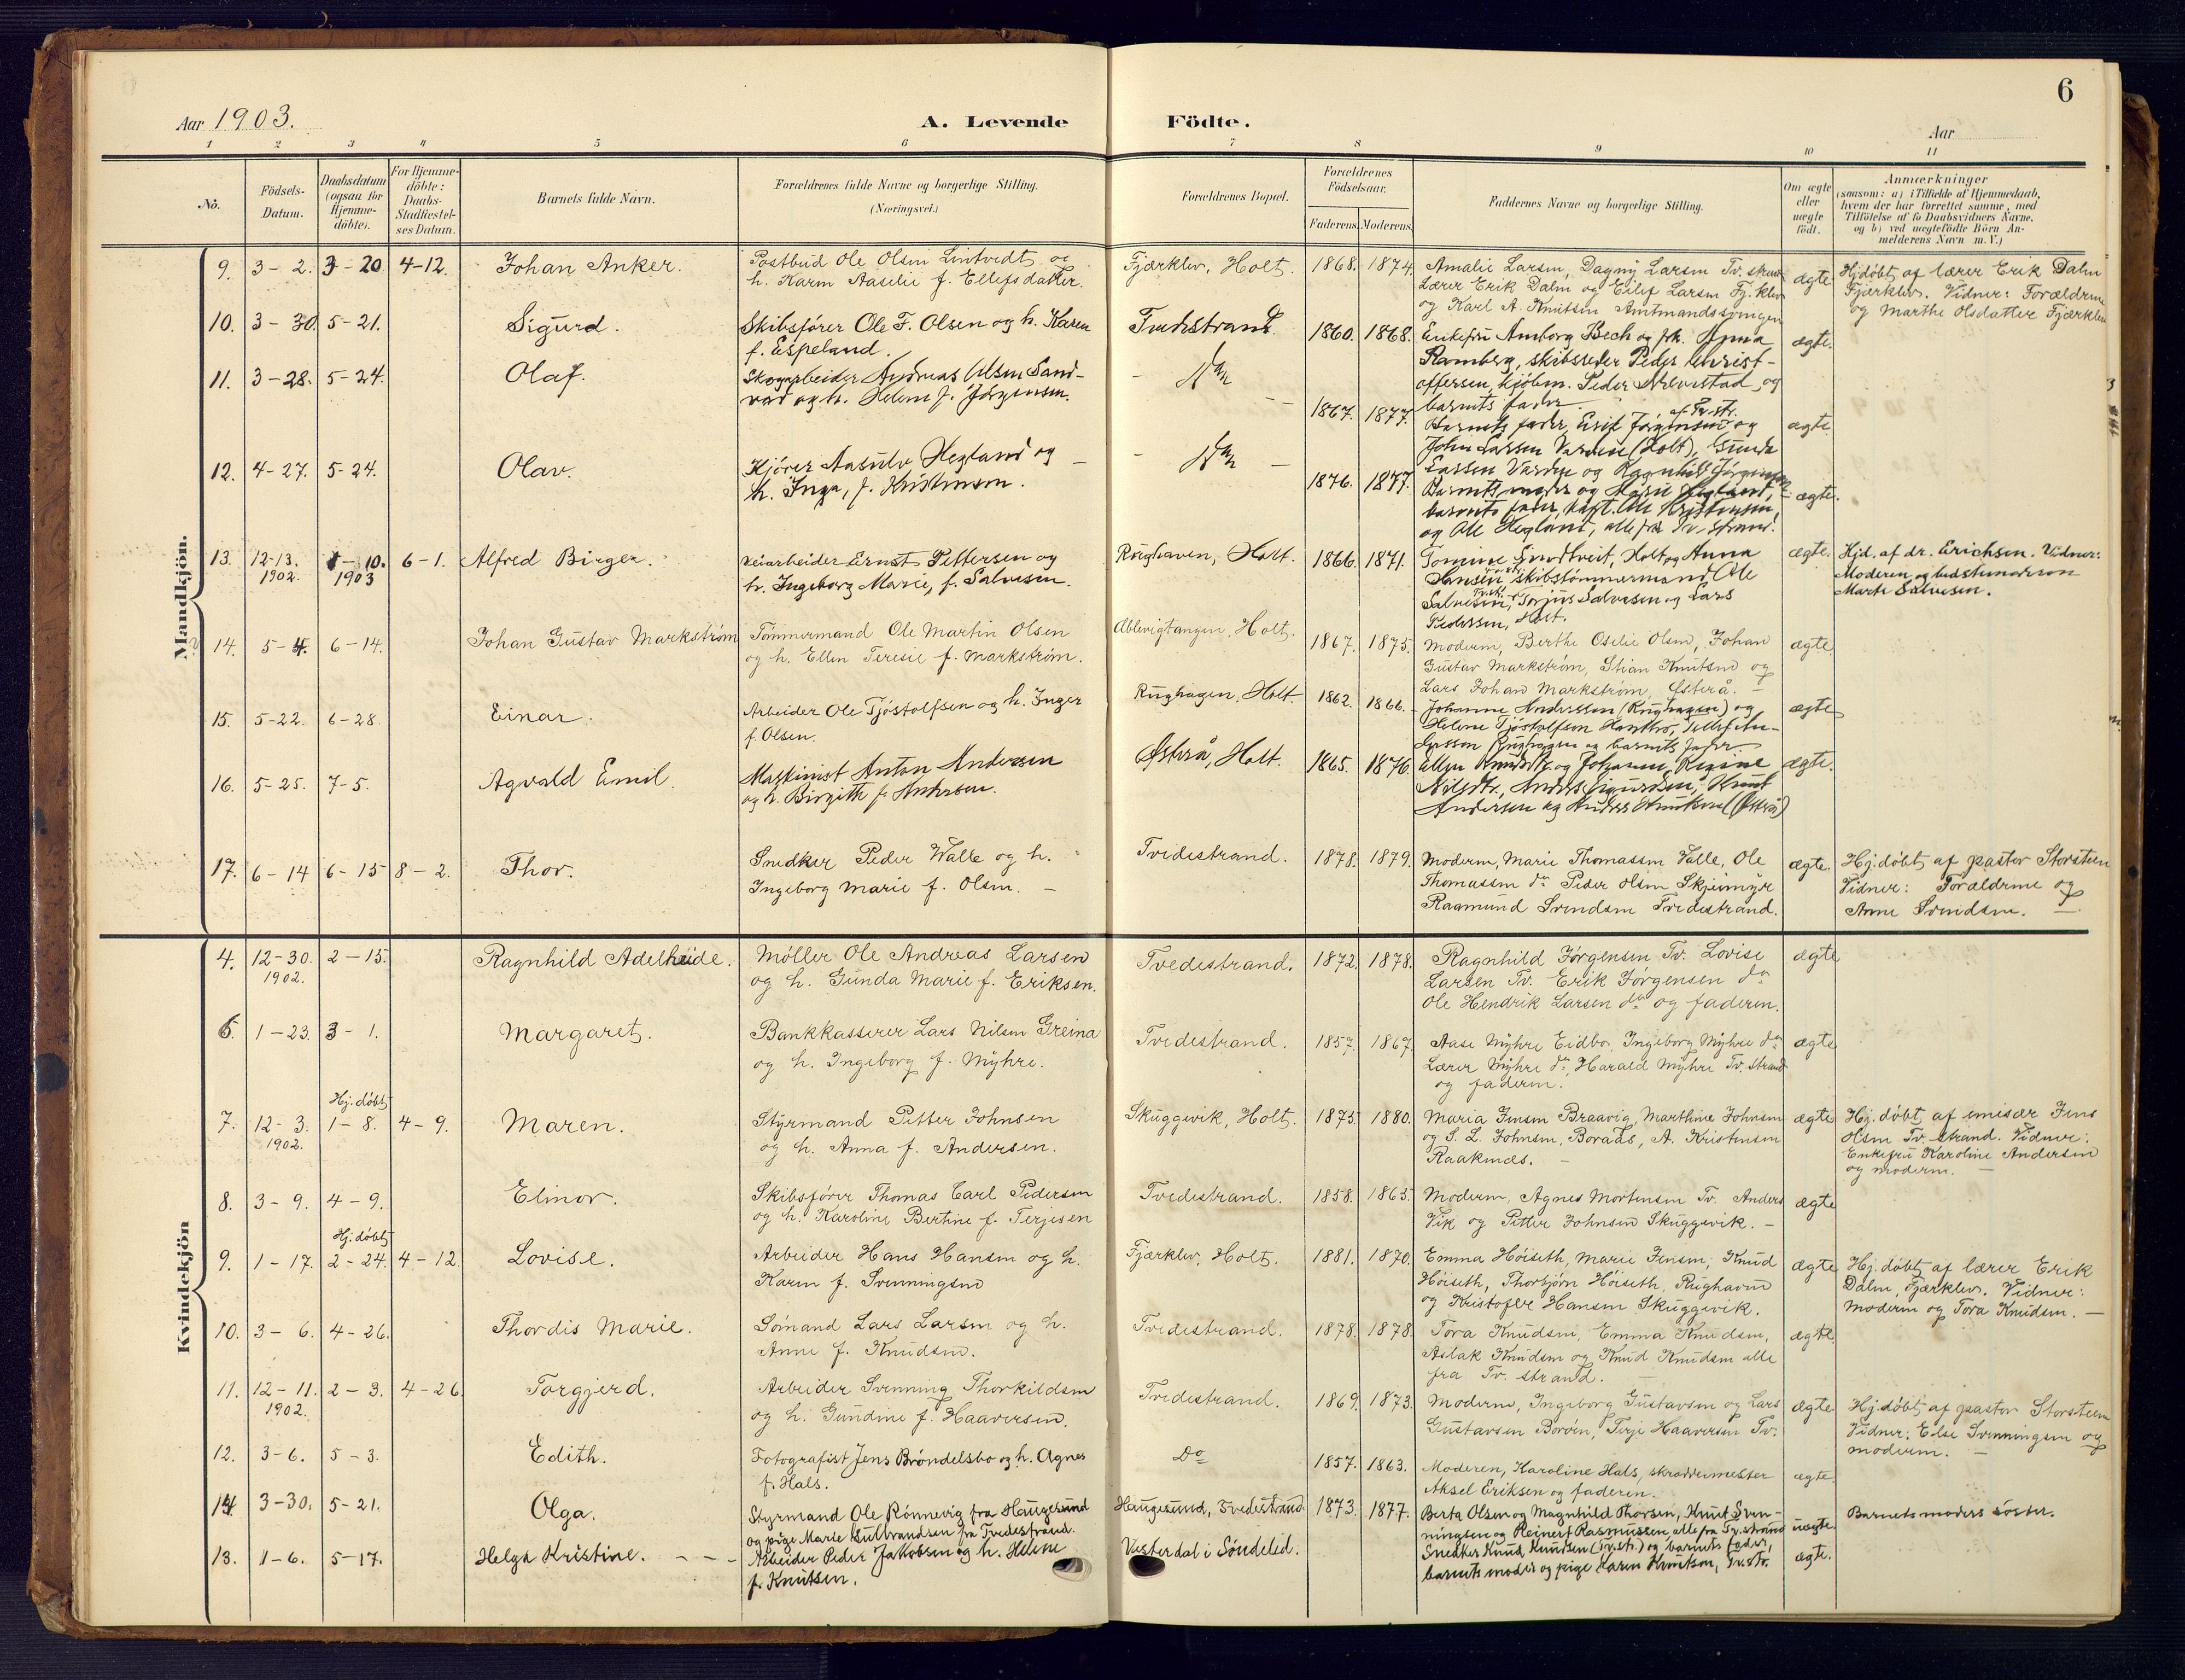 6
Aar 1903.
A. Levende Födte.
Aar
1 2 3 4 5 6 7 8 9 10 11
No.
Födsels-Datum.
Daabsdatum (ogsaa for Hjemme-döbte).
For Hjemme-döbte: Daabs-Stadfæstel-ses Datum.
Barnets fulde Navn.
Forældrenes fulde Navne og borgerlige Stilling.
(Næringsvei.)
Forældrenes Bopæl.
Forældrenes Födselsaar.
Faderens. Moderens.
Faddernes Navne og borgerlige Stilling.
Om ægte eller uægte födt.
Anmærkninger
(saasom: a) i Tilfælde af Hjemmedaab, hvem der har forrettet samme, med Tilföielse af to Daabsvidners Navne, og b) ved uægtefödte Börn Anmelderens Navn m. V.)
Mandkjön.
9. 3-2. 3-20 4-12. Johan Anker.
Postbud Ole Olsen Lintvedt og
h. Karen Aaselie f. Ellefsdatter.
Fjærklev, Holt. 1868. 1874.
Amalie Larsen, Dagny Larsen Tv. strand
Lærer Erik Dalen og Eilef Larsen Fj.klev
og Karl A. Knutsen Amtmandssvingen
ægte
Hjdöbt af lærer Erik Dalen
Fjærklev. Vidner: Forældrene
og Marthe Olsdatter Fjærklev
10. 3-30. 5-21. Sigurd.
Skibsfører Ole F. Olsen og h. Karen
f. Espeland.
Tvedestrand. 1860. 1868.
Enkefru Amborg Bech og frk. Anna
Ramberg, skibsreder Peder Christ-
offersen, kjöbm. Peder
barnets fader.
ægte.
11. 3-28. 5-24. Olaf.
Skogarbeider Andreas Olsen Sand-
og h. Helene f. Jörgensen.
- Do 1867. 1877.
Barnets fader, Erik Jörgensen af Tv.str. og
John Larsen Varden (Holt), Gunda
Larsen Varden og Ragnhild Jörgensen
ægte.
12. 4-27. 5-24. Olav.
Kjörer Aasulv Hegland og
h. Inga, f. Kristensen.
- Do - 1876. 1877.
Barnets moder og Marie Hegland,
barnets fader, kapt. Ole Kristensen,
og Ole Hegland, alle fra Tv-strand.
ægte.
13. 12-13. 1902. 1-10. 1903 6-1. Alfred Birger.
Veiarbeider Ernst Pettersen og
h. Ingeborg Marie, f. Salvesen.
Rughaven, Holt. 1866. 1871.
Tomine Holt og Anna
Hansen skibstømmermand Ole
Salvesen, Torjus Salvesen og Lars
Pedersen, Holt.
ægte.
Hjd. af dr. Erichsen. Vidner:
Moderen og bedstemoderen
Marte Salvesen.
14. 5-4. 6-14. Johan Gustav Markström
Tömmermand Ole Martin Olsen
og h. Ellen Teresie f. Markström.
Ablevigtangen, Holt. 1867. 1875.
Moderen, Berthe Oselie Olsen, Johan
Gustav Markström, Stian Knutsen og
Lars Johan Markström, Østerå. -
ægte.
15. 5-22. 6-28. Einar.
Arbeider Ole Tjöstolfsen og h. Inger
f. Olsen.
Rughagen, Holt. 1862. 1866.
Johanne Andersen (Rughagen) og
Helene Tjöstolfsen
Rughagen og barnets fader
ægte
16. 5-25. 7-5. Agvald Emil.
Maskinist Anton Andersen
og h. Birgith f. Andersen.
Østerå, Holt. 1865. 1876.
Ellen og Johanne Regine
Nilsdtr., Anders Knut
Andersen og Anders Knutsen (Østerå)
ægte.
17. 6-14 6-15 8-2. Thor.
Snedker Peder Walle og h.
Ingeborg Marie f. Olsen. -
Tvedestrand. 1878. 1879.
Moderen, Marie Thomassen Valle, Ole
Thomassen do Peder Olsen Skjeimyr
Raamund Svendsen Tvedestrand.
ægte.
Hj.döbt af pastor Storsteen
Vidner: Forældrene og
Anne Svendsen. -
Kvindekjön
4. 12-30. 1902. 2-15. Ragnhild Adelheide.
Møller Ole Andreas Larsen
og h. Gunda Marie f. Eriksen.
Tvedestrand. 1872. 1878.
Ragnhild Jørgensen Tv. Lovise
Larsen Tv. Erik Jørgensen do
Ole Hendrik Larsen do og faderen.
ægte
6. 1-23. 3-1. Margaret.
Bankkasserer Lars Nilsen Greina
og h. Ingeborg f. Myhre.
Tvedestrand. 1857. 1867.
Aase Myhre Eidbo, Ingeborg Myhre do
Lærer Myhre do, Harald Myhre Tv. strand
og faderen.
ægte
7. 12-3. 1902. Hj.döbt 1-8. 4-9. Maren.
Styrmand Petter Johnsen
og h. Anna f. Andersen.
Skuggevik, Holt. 1875. 1880.
Maria Jensen Braavig, Marthine Johnsen
og S. L. Johnsen, Boraas, A. Kristensen
Raaknes. -
ægte
Hj.döbt af emisær Jens
Olsen Tv. strand. Vidner:
Enkefru Karoline Andersen
og moderen. -
8. 3-9. 4-9. Elinor.
Skibsfører Thomas Carl Pedersen
og h. Karoline Bertine f. Terjesen
Tvedestrand. 1858. 1865.
Moderen, Agnes Mortensen Tv. Anders
Vik og Petter Johnsen Skuggevik. -
ægte
9. 1-17. Hj.döbt 2-24. 4-12. Lovise.
Arbeider Hans Hansen og h.
Karen f. Svenningsen
Fjærklev, Holt. 1881. 1870.
Emma Höiseth, Marie Jensen, Knud
Höiseth, Thorbjörn Höiseth, Rughaven
og Kristofer Hansen Skuggevik.
ægte
Hj.döbt af lærer Erik
Dalen, Fjærklev. Vidner:
Moderen og Tora Knudsen. -
10. 3-6. 4-26. Thordis Marie.
Sömand Lars Larsen og h.
Anne f. Knudsen.
Tvedestrand. 1878. 1878.
Tora Knudsen, Emma Knudsen,
Aslak Knudsen og Knud Knudsen alle
fra Tv. strand. -
ægte
11. 12-11. 1902. 2-3. 4-26. Torgjerd.
Arbeider Svenning Thorkildsen
og h. Gundine f. Haaversen.
Tvedestrand. 1869. 1873.
Moderen, Ingeborg Gustavsen og Lars
Gustavsen Borøen, Terje Haaversen Tv.
ægte
Hj.döbt af pastor Storsteen
Vidner: Else Svenningsen og
moderen. -
12. 3-6. 5-3. Edith.
Fotografist Jens Bröndelsbo og h. Agnes
f. Hals.
Do 1857. 1863.
Moderen, Karoline Hals, skræddermester
Aksel Eriksen og faderen.
ægte
14. 3-30. 5-21. Olga.
Styrmand Ole Rönnevig fra Haugesund
og pige Marie Gulbrandsen fra Tvedestrand.
Haugesund, Tvedestrand 1873. 1877.
Berta Olsen og Magnhild Thorsen, Knut Sven-
ningsen og Reinert Rasmussen, alle fra Tv.strand
uægte
Barnets moders söster.
13. 1-6. 5-17. Helga Kristine. - - -
Arbeider Peder Jakobsen og h. Helene
f. Knutsen.
Vesterdal i Söndeled.
Snedker Knud Knudsen (Tv.str.) og barnets fader,
barnets moder og pige Karen Knutson, Tv.str.
ægte.